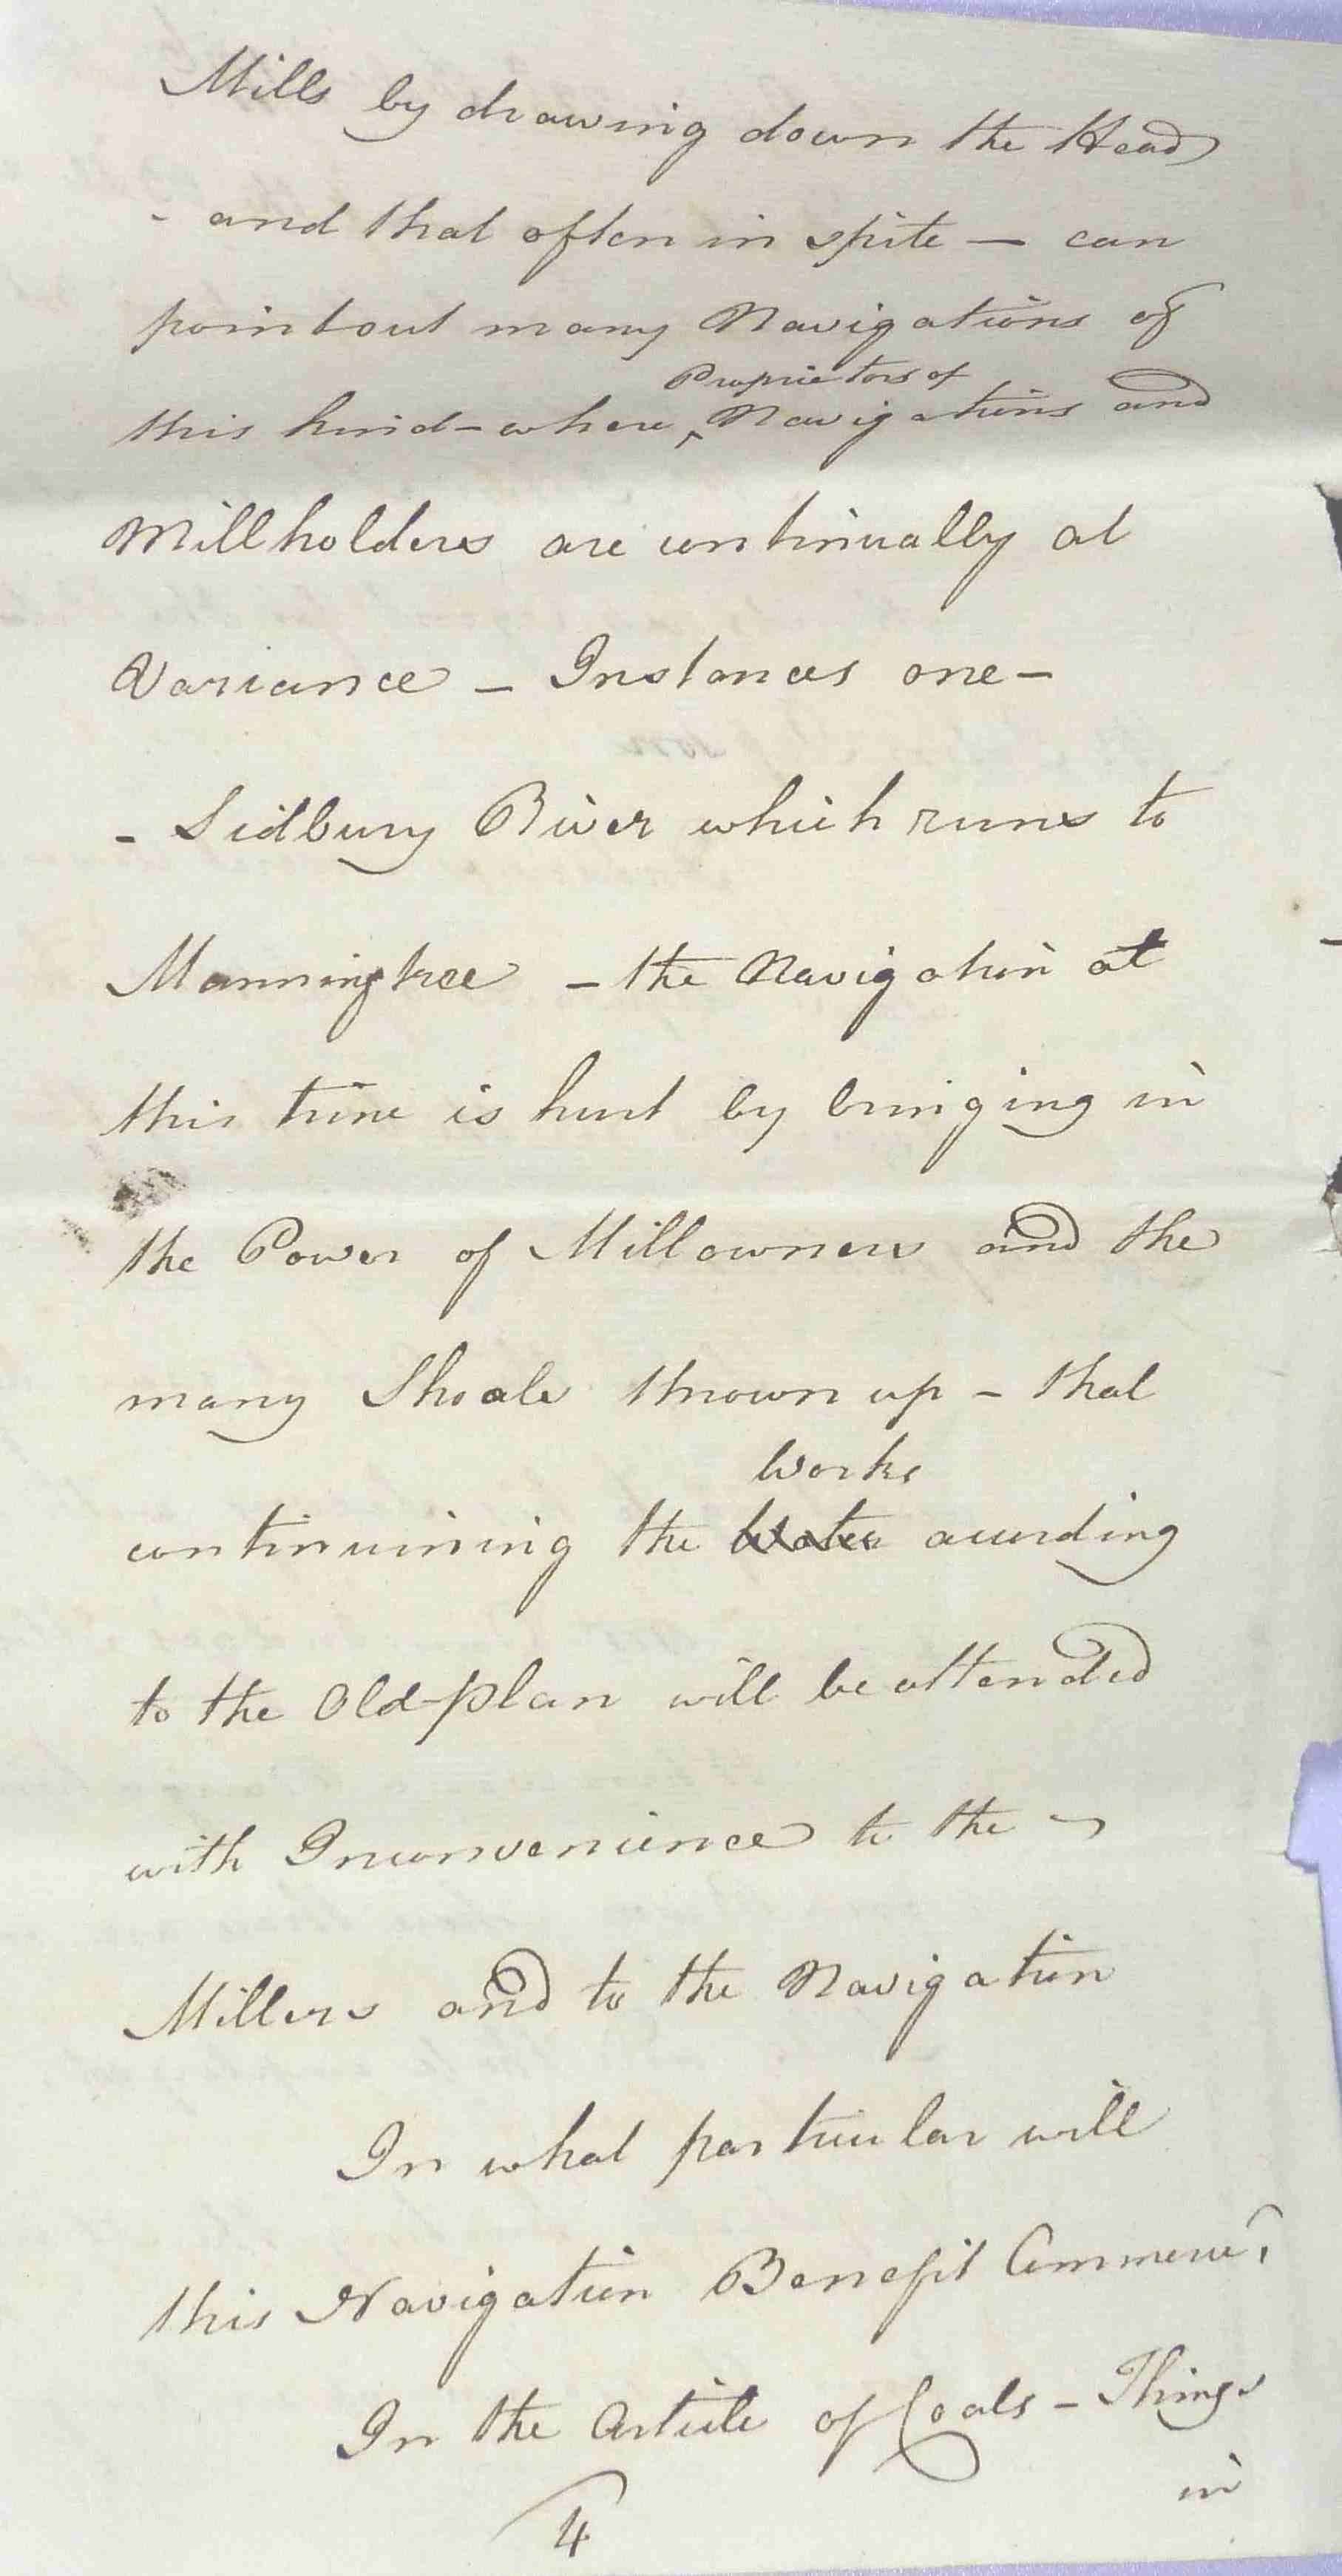 Mills by drawing down the Head
- and that often in spite — can
point out many Navigations of
Proprietors of
this kind - where ‸ Navigations and
Millholders are continually at
Variance — Instances one —
- Sidbury River which runs to
Manningtree — the Navigation at
this time is hurt by bringing in
the Power of Millowners and the
many Shoals thrown up — that
Works
continuining the Water according
to the Old plan will be attended
with Inconvenience to the —
Millers and to the Navigation
In what particular will
this Navigation Benefit Commerce?
In the Article of Coals — Things
in
4